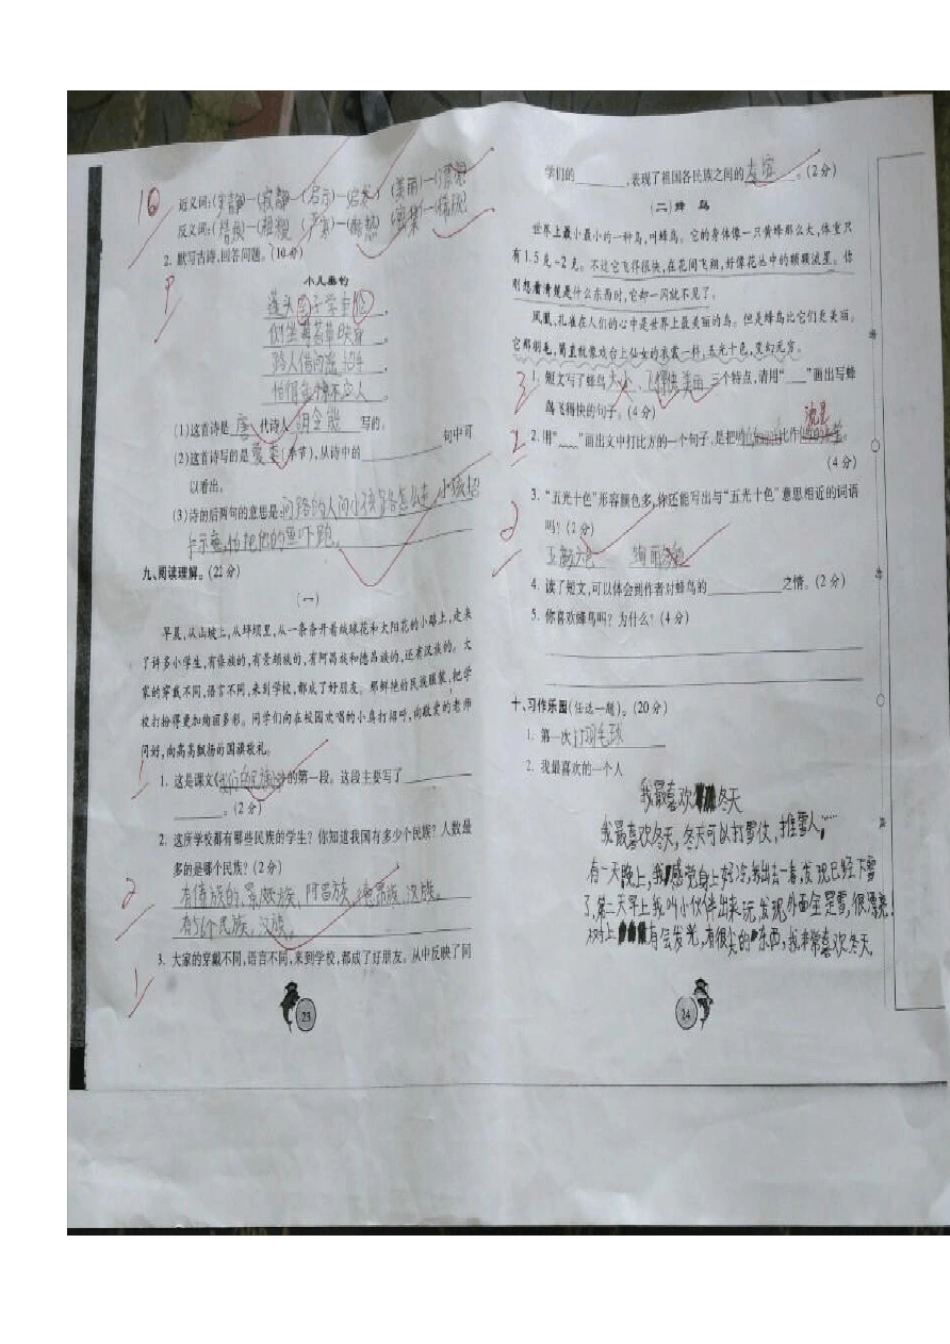 10
近义词:(宁静)—(寂静) (启示)—(启发) (美丽)—(漂亮)
反义词:(精良)—(粗糙) (严寒)—(酷热) (密集)—(稀疏)
2. 默写古诗,回答问题。(10分)
小儿垂钓
蓬头 子学垂
侧坐莓苔草映身
路人借问遥招手
怕得鱼惊不应人
(1)这首诗是 唐 代诗人 胡令能 写的。
(2)这首诗写的是 夏季(季节),从诗中的 句中可
以看出。
(3)诗的后两句的意思是:问路的人问小孩路怎么走,小孩招
手示意,怕把他的鱼吓跑。
九、阅读理解。(22分)
(一)
早晨,从山坡上,从坪坝里,从一条条开着绒球花和太阳花的小路上,走来
了许多小学生,有傣族的,有景颇族的,有阿昌族和德昂族的,还有汉族的。大
家的穿戴不同,语言不同,来到学校,都成了好朋友。那鲜艳的民族服装,把学
校打扮得更加绚丽多彩。同学们向在校园欢唱的小鸟打招呼,向敬爱的老师
问好,向高高飘扬的国旗敬礼。
1
1. 这是课文《我们的民族小学》的第一段。这段主要写了
。(2分)
2. 这所学校都有哪些民族的学生?你知道我国有多少个民族?人数最
多的是哪个民族?(2分)
2
有傣族的、景颇族、阿昌族、德昂族、汉族。
有56个民族,汉族。
3. 大家的穿戴不同,语言不同,来到学校,都成了好朋友。从中反映了同
1
23
学们的 ,表现了祖国各民族之间的 友谊 。(2分)
(二)蜂 鸟
世界上最小最小的一种鸟,叫蜂鸟。它的身体像一只黄蜂那么大,体重只
有1.5克~2克。不过它飞得很快,在花间飞翔,好像花丛中的颗颗流星。你
刚想看清楚是什么东西时,它却一闪就不见了。
凤凰、孔雀在人们的心中是世界上最美丽的鸟。但是蜂鸟比它们更美丽。
它那羽毛,简直就像戏台上仙女的衣裳一样,五光十色,变幻无穷。
3
1. 短文写了蜂鸟 大小 、飞得快 美丽 三个特点,请用“ ”画出写蜂
鸟飞得快的句子。(4分)
流星
2
2. 用“ ”画出文中打比方的一个句子,是把 比作 。
(4分)
3. “五光十色”形容颜色多,你还能写出与“五光十色”意思相近的词语
吗?(2分)
2
五颜六色 绚丽多彩
4. 读了短文,可以体会到作者对蜂鸟的 之情。(2分)
5. 你喜欢蜂鸟吗?为什么?(4分)
十、习作乐园(任选一题)。(20分)
1. 第一次打羽毛球
2. 我最喜欢的一个人
我最喜欢 冬天
我最喜欢冬天,冬天可以打雪仗,堆雪人……
有一天晚上,我感觉身上好冷,我出去一看,发现已经下雪
了,第二天早上我叫小伙伴出来玩,发现外面全是雪,很漂亮!
树上 有会发光,有很尖的东西,我非常喜欢冬天。
24